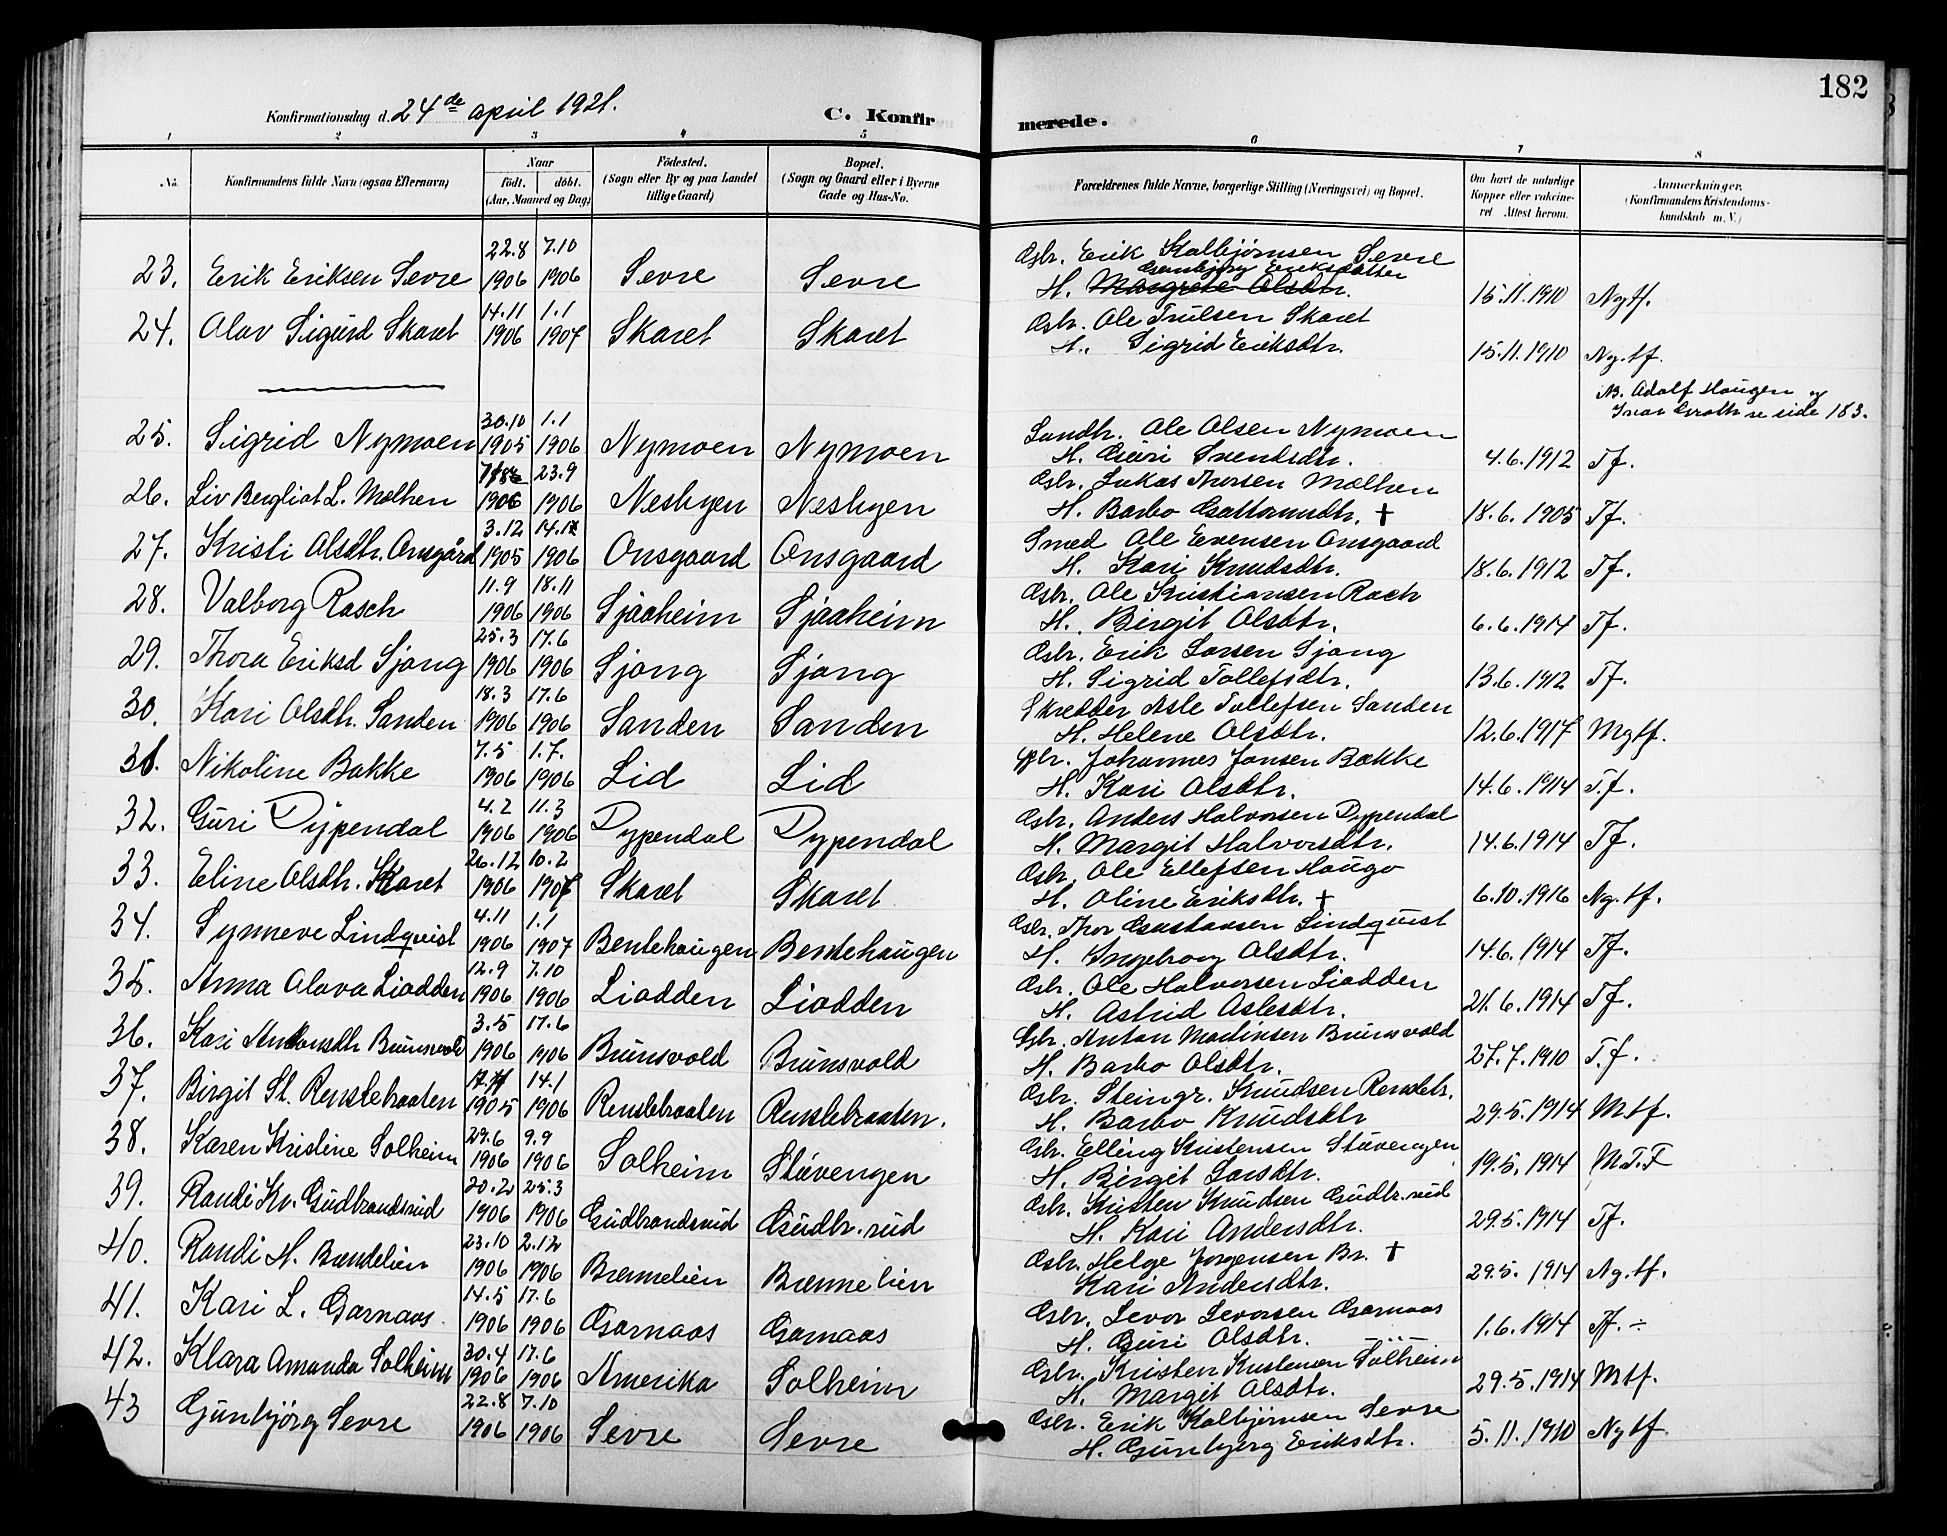 182
Konfirmationsdag d. 24de april 1921.
C. Konfirmerede.
1 2 3 4 5 6 7 8
No. Konfirmandens fulde Navn (ogsaa Efternavn) Naar født. døbt. (Aar, Maaned og Dag) Fødested. (Sogn eller By og paa Landet tillige Gaard) Bopæl. (Sogn og Gaard eller i Byerne Gade og Hus-No. Forældrenes fulde Navne, borgerlige Stilling (Næringsvei) og Bopæl. Om havt de naturlige Kopper eller vakcineret. Attest herom. Anmerkninger. (Konfirmandens Kristendomskundskab m. V.)
23. Erik Eriksen Sevre 22.8 1906 7.10 1906 Sevre Sevre Gbr. Erik Kolbjørnsen Sevre
H. Margrete Olsdtr. Gunbjørg Eriksdatter 15.11.1910 Ng tf.
24. Olav Sigurd Skaret 14.11 1906 1.1 1907 Skaret Skaret Gbr. Ole Trulsen Skaret
H. Sigrid Eriksdtr. 15.11.1910 Ng.tf.
NB. Adolf Haugen og
Ivar Groth se side 183.
25. Sigrid Nymoen 30.10 1905 1.1 1906 Nymoen Nymoen Landh. Ole Olsen Nymoen
H. Guri Svendsdtr. 4.6.1912 Tf.
26. Liv Bergliot L. Mælhen 1906 23.9 1906 Nesbyen Nesbyen Gbr. Lukas Thorsen Mælhen
H. Barbo Guttormsdtr. † 18.6.1905 Tf.
27. Kristi Olsdtr. Onsgård 3.12 1905 14.1 1906 Onsgaard Onsgaard Smed Ole Evensen Onsgaard
H. Kari Knudsdtr. 18.6.1912 Tf.
28. Valborg Rasch 11.9 1906 18.11 1906 Sjaaheim Sjaaheim Gbr. Ole Kristiansen Rach
H. Birgit Olsdtr. 6.6.1914 Tf.
29. Thora Eriksd Sjong 25.3 1906 17.6 1906 Sjong Sjong Gbr. Erik Larsen Sjong
H. Sigrid Tollefsdtr. 13.6.1912 Tf.
30. Kari Olsdtr. Sanden 18.3 1906 17.6 1906 Sanden Sanden Skrædder Asle Tollefsen Sanden
H. Helene Olsdtr. 12.6.1917 Mgtf.
31. Nikoline Bakke 7.5 1906 1.7. 1906 Lid Lid Johannes Jonsen Bakke
H. Kari Olsdtr. 14.6.1914 T.f.
32. Guri Dypendal 4.2 1906 11.3 1906 Dypendal Dypendal Gbr. Anders Halvorsen Dypendal
H. Margit Halvorsdtr. 14.6.1914 Tf.
33. Eline Olsdtr. Skaret 26.12 1906 10.2 1907 Skaret Skaret Gbr. Ole Ellefsen Haugo
H. Oline Eriksdtr. † 6.10.1916 Ng.tf.
34. Synneve Lindqvist 4.11 1906 1.1 1907 Bentehaugen Bentehaugen Gbr. Thor Gustavsen Lindquist
H. Ingeborg Olsdtr. † 14.6.1914 Tf.
35. Anna Olava Liodden 12.9 1906 7.10 1906 Liodden Liodden Gbr. Ole Halvorsen Liodden
H. Astrid Aslesdtr. 21.6.1914 Tf.
36. Kari Antonsdtr Brunsvold 3.5 1906 17.6 1906 Brunsvold Brunsvold Gbr. Anton Martinsen Brunsvold
H. Barbo Olsdtr. 27.7.1910 T.f.
37. Birgit St. Renslebraaten 1905 14.1 1906 Renslebraaten Renslebraaten. Gbr. Steingr. Knudsen
H. Barbo Knudsdtr 29.5.1914 Mtf.
38. Karen Kristine Solheim 29.6 1906 9.9 1906 Solheim Støvengen Gbr. Elling Kristensen Støvengen
H. Birgit Larsdtr. 19.5.1914 M.T.F
39. Randi Kr. Gudbrandsrud 20.2 1906 25.3 1906 Gudbrandsrud Gudbr.rud Gbr. Kristen Knudsen Gudbr.rud
H. Kari Andersdtr. 29.5.1914 Tf.
40. Randi H. 23.10 1906 2.12 1906 Brennelien Brennelien Gbr. Helge Jørgensen Br. †
Kari Andersdtr. 29.5.1914 Ng.tf.
41. Kari L. Garnaas 14.5 1906 17.6 1906 Garnaas Garnaas Gbr. Levor Levorsen Garnaas
H. Guri Olsdtr. 1.6.1914 Tf. ÷
42. Klara Amanda Solheim 30.4 1906 17.6 1906 Amerika Solheim Gbr. Kristen Kristensen Solheim
H. Margit Olsdtr. 29.5.1914 Mtf.
43 Gunbjørg Sevre 22.8 1906 7.10 1906 Sevre Sevre Gbr. Erik Kolbjørnsen Sevre
H. Gunbjørg Eriksdtr. 5.11.1910 Ng tf